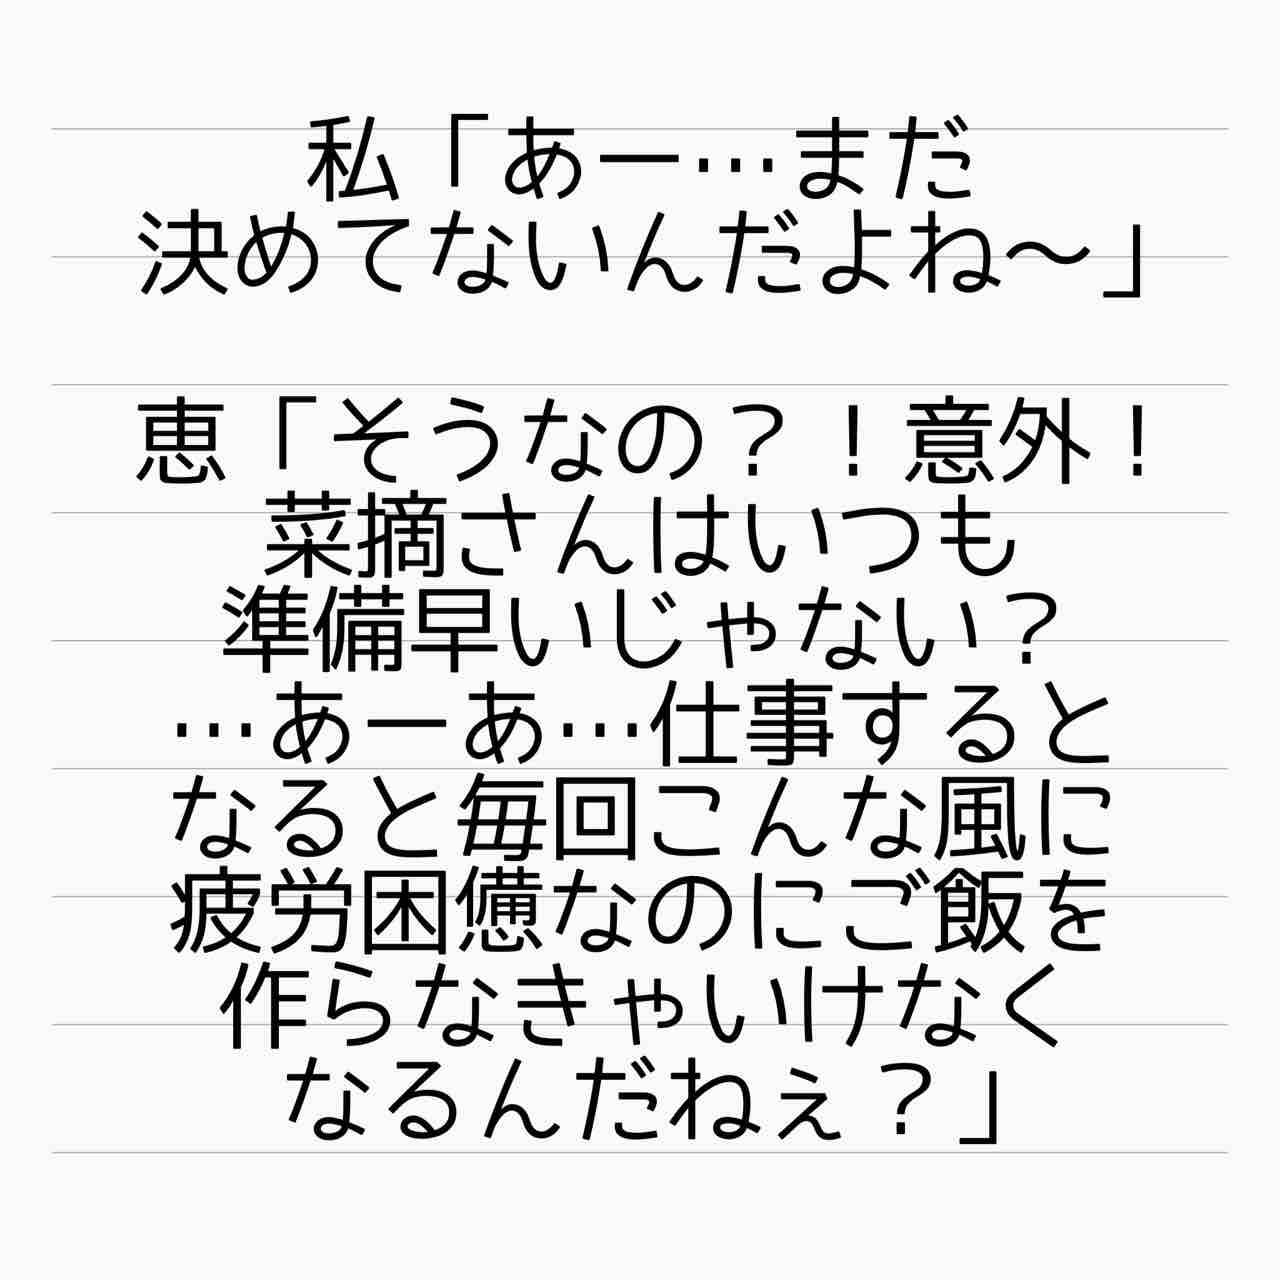 私「あー…まだ
決めてないんだよね〜」
恵「そうなの？！意外！
菜摘さんはいつも
準備早いじゃない？
…あーあ…仕事すると
なると毎回こんな風に
疲労困憊なのにご飯を
作らなきゃいけなく
なるんだねぇ？」